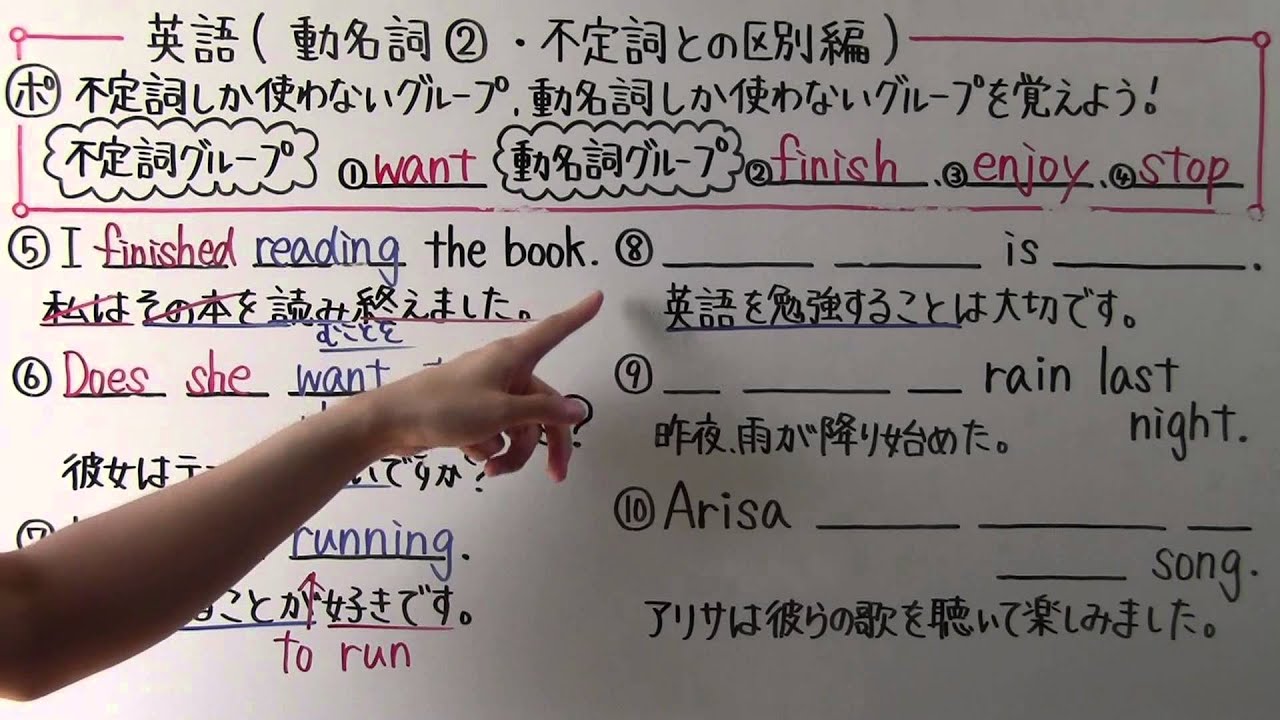 英語(動名詞②・不定詞との区別編)
ポ 不定詞しか使わないグループ,動名詞しか使わないグループを覚えよう!
不定詞グループ ①want 動名詞グループ ②finish、③enjoy、④stop
⑤I finished reading the book.
私はその本を読み終えました。
むことを
⑥Does she want
?
彼女はテ いですか?
⑦ running.
ことが好きです。
to run
⑧ is .
英語を勉強することは大切です。
⑨ rain last
night.
昨夜、雨が降り始めた。
⑩Arisa
song.
アリサは彼らの歌を聴いて楽しみました。